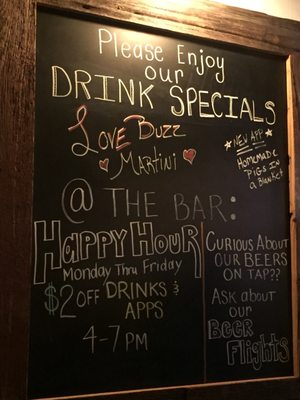 Please Enjoy
our
DRINK SPECIALS
Love Buzz
Martini
NEW APP
Homemade
Pigs
in
a Blanket
@ THE BAR:
Happy Hour
Monday Thru Friday
$2 OFF DRINKS &
APPS
4-7 PM
Curious About
our BEERS
ON TAP??
Ask about
our
BEER
Flights